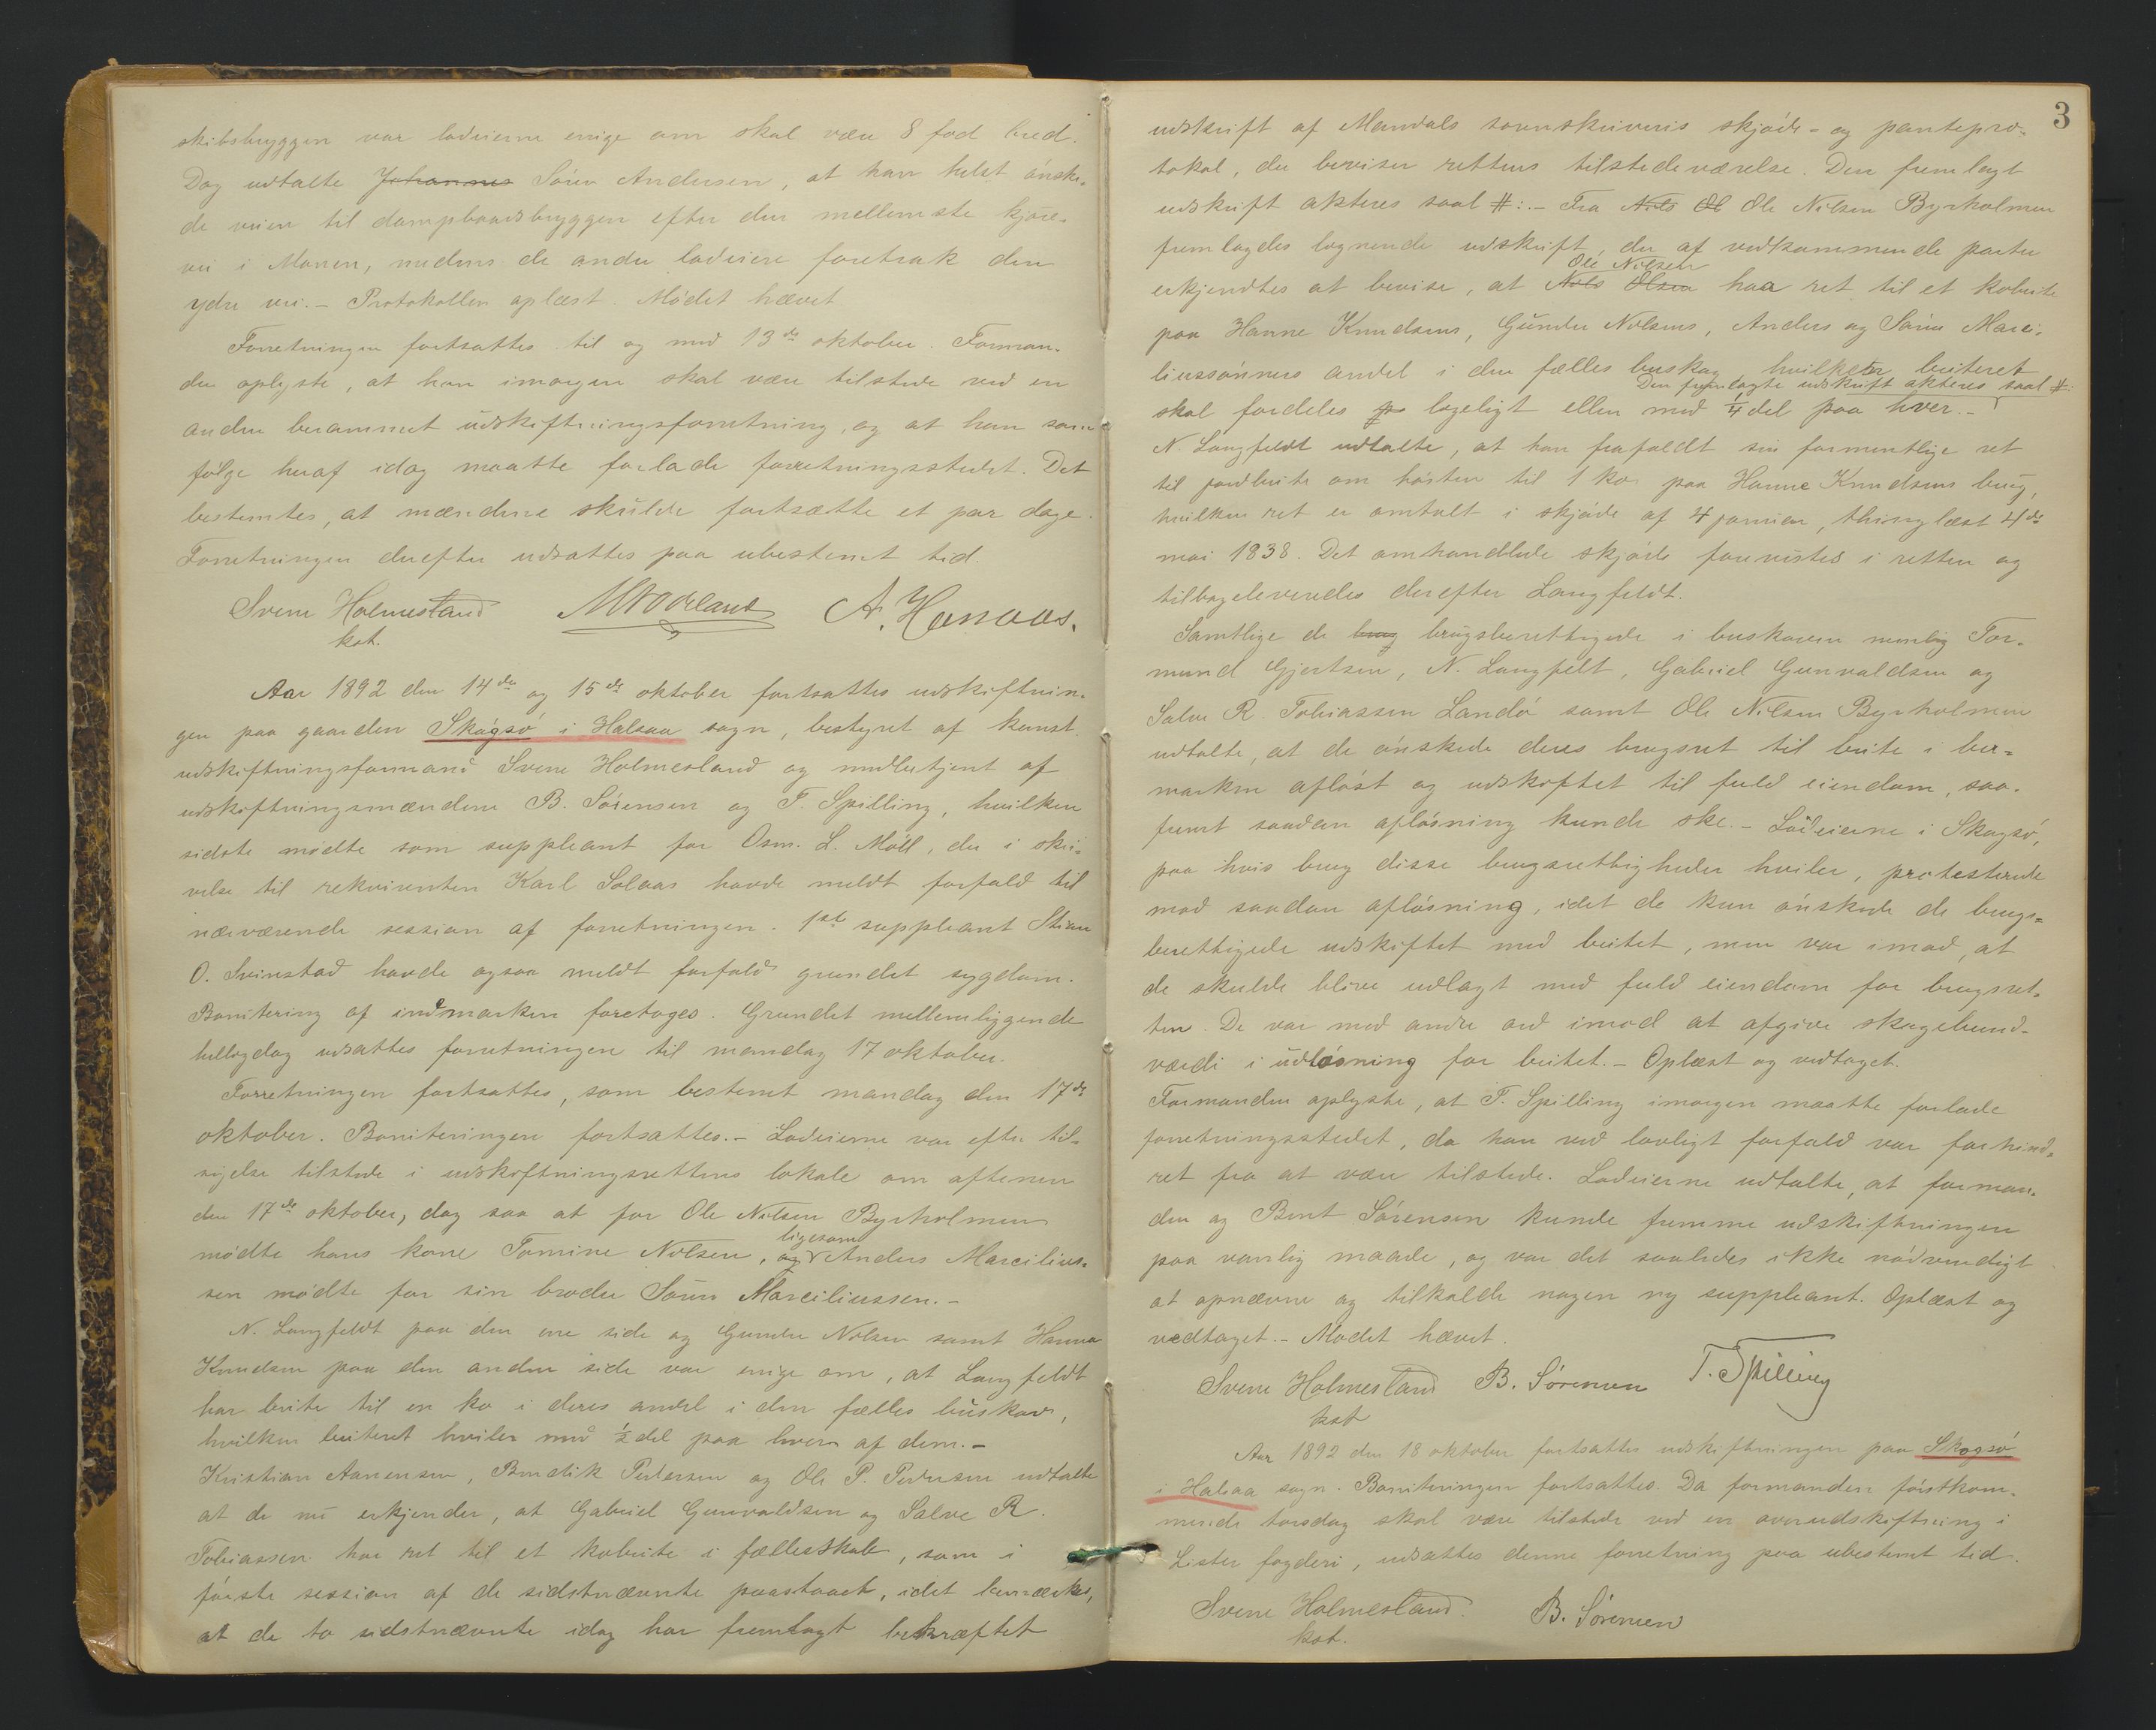 skibsbryggen var lodeierne enige om skal være 8 fod bred.
Dog udtalte Johannes Sören Andersen, at han helst önske-
de veien til dampbaadsbryggen efter den mellemste kjöre-
vei i Monen, medens de andre lodeiere foretrak den
ydre vei. - Protokollen oplæst. Mödet hævet
Forretningen fortsattes til og med 13de oktober. Forman-
den oplyste, at han imorgen skal være tilstede ved en
anden berammet udskiftningsforretning, og at han som
fölge heraf idag maatte forlade forretningsstedet. Det
bestemtes, at mændene skulde fortsætte et par dage.
Forretningen derefter udsattes paa ubestemt tid.
Svene Holmesland A. Hanaas.
kst.
Aar 1892 den 14de og 15de oktober fortsattes udskiftnin-
gen paa gaarden Skogsö i Halsaa sogn, bestyret af konst.
udskiftningsformand Svene Holmesland og medbetjent af
udskiftningsmændene B. Sörensen og T. Spilling, hvilken
sidste mödte som suppleant for Osm. L. Moll, der i skri-
velse til rekvirenten Karl Solaas havde meldt forfald til
nærværende session af forretningen. 1ste suppleant Stian
O. Svinstad havde ogsaa meldt forfald grundet sygdom.
Bonitering af indmarken foretoges. Grundet mellemliggende
helligdag udsattes forretningen til mandag 17 oktober.
Forretningen fortsattes, som bestemt mandag den 17de
oktober. Boniteringen fortsattes. - Lodeierne var efter til-
sigelse tilstede i udskiftningsrettens lokale om aftenen
den 17de oktober, dog saa at for Ole Nilsen Byrholmen
mödte hans kone Tomine Nilsen, og ligesom Anders Marcilius-
sen mödte for sin broder Sören Marciliussen. -
N. Langfeldt paa den ene side og Gunder Nilsen samt Hanne
Knudsen paa den anden side var enige om, at Langfeldt
har beite til en ko i deres andel i den fælles buskov,
hvilken beiteret hviler med ½ del paa hver af dem. -
Kristian Aanensen, Bendik Pedersen og Ole P. Pedersen udtalte
at de nu erkjender, at Gabriel Gunvaldsen og Salve R.
Tobiassen har ret til et kobeite i fællesskab, som i
förste session af de sidstnævnte paastaaet, idet bemærkes,
at de to sidstnævnte idag har fremlagt bekræftet
3
udskrift af Mandals sorenskriveris skjöde- og pantepro-
tokol, der beviser rettens tilstedeværelse. Den fremlagt
udskrift akteres saal #: - Fra Nils Ol Ole Nilsen Byrholmen
fremlagdes lognende udskrift, der af vedkommende parter
erkjendtes at bevise, at Nils Olsen Ole Nilsen har ret til et kobeite
paa Hanne Knudsens, Gunder Nilsens, Anders og Sören Marci-
liussönners andel i den fælles buskov, hvilken beiteret
skal fordeles p lageligt eller med ¼ del paa hver. - Den fremlagte udskrift akteres saal #:
N. Langfeldt udtalte, at han frafaldt sin formentlige ret
til jordbeite om hösten til 1 ko paa Hanne Knudsens brug,
hvilken ret er omtalt i skjöde af 4 januar, thinglæst 4de
mai 1838. Det omhandlede skjöde forevistes i retten og
tilbageleveredes derefter Langfeldt.
Samtlige de brug brugsberettigede i buskoven nemlig Tor-
mund Gjertsen, N. Langfelt, Gabriel Gunvaldsen og
Salve R. Tobiassen Landö samt Ole Nilsen Byrholmen
udtalte, at de önskede deres brugsret til beite i bu-
marken aflöst og udskiftet til fuld eiendom, saa-
fremt saadan aflösning kunde ske. - Lodeierne i Skogsö,
paa hvis brug disse brugsrettigheder hviler, protesterede
mod saadan aflösning, idet de kun önskede de brugs-
berettigede udskiftet med beitet, men var imod, at
de skulde blive udlagt med fuld eiendom for brugsret-
ten. De var med andre ord imod at afgive skogsbund-
værdi i udlösning for beitet. - Oplæst og vedtaget.
Formanden oplyste, at T. Spilling imorgen maatte forlade
forretningsstedet, da han ved lovligt forfald var forhind-
ret fra at være tilstede. Lodeierne udtalte, at forman-
den og Bent Sörensen kunde fremme udskiftningen
paa vanlig maade, og var det saaledes ikke nödvendigt
at opnævne og tilkalde nogen ny suppleant. Oplæst og
vedtaget. - Mödet hævet.
Svene Holmesland B. Sörensen T. Spilling
kst
Aar 1892 den 18 oktober fortsattes udskiftningen paa Skogsö
i Halsaa sogn. Boniteringen fortsattes. Da formanden förstkom-
mende torsdag skal være tilstede ved en overudskiftning i
Lister fogderi, udsættes denne forretning paa ubestemt tid.
Svene Holmesland B. Sörensen
kst.